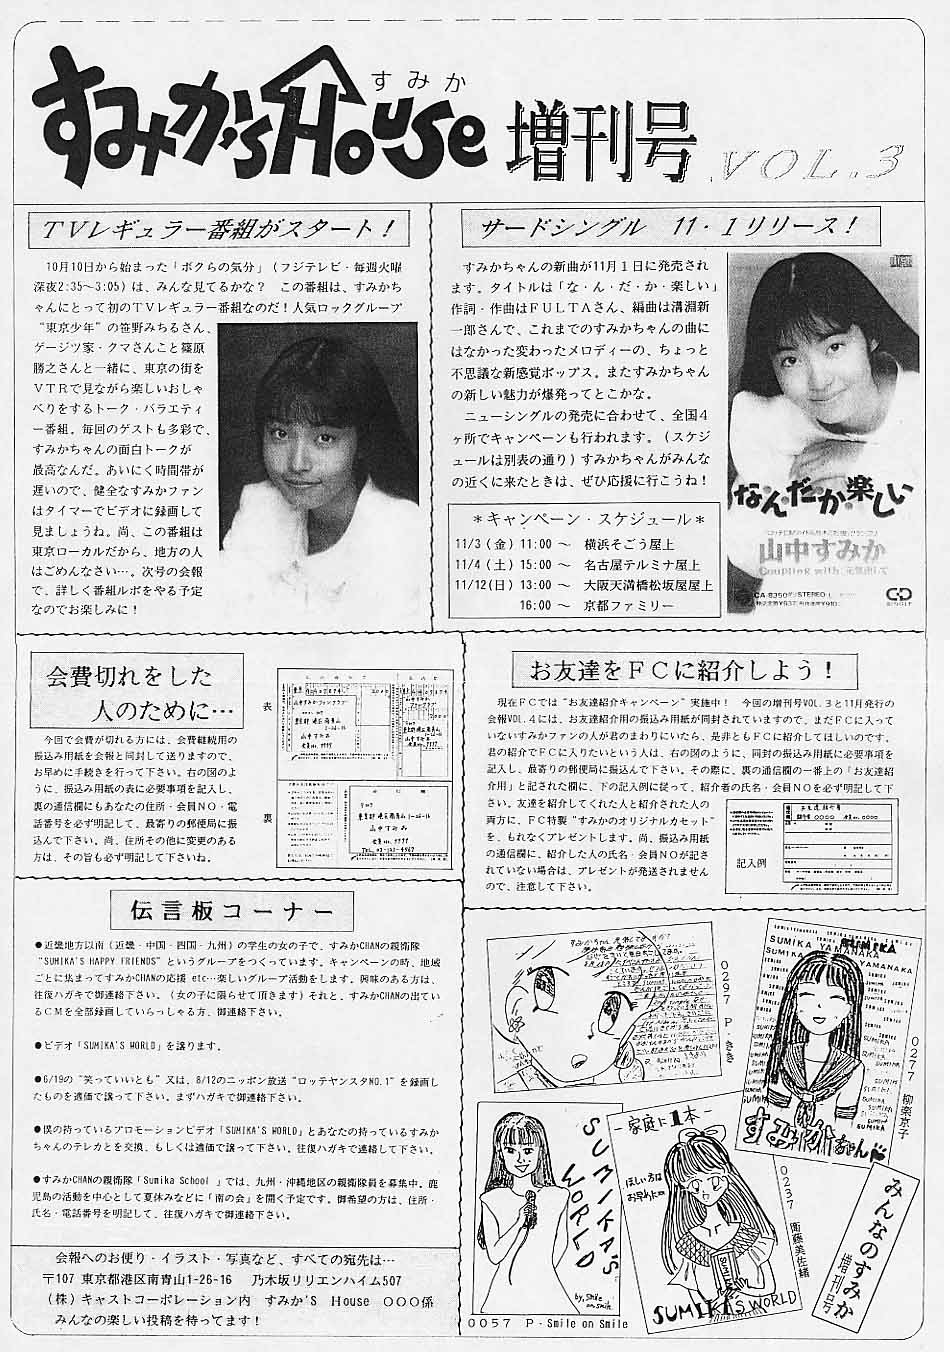 すみか'S House
すみか
増刊号
VOL.3
TVレギュラー番組がスタート!
10月10日から始まった「ボクらの気分」(フジテレビ・毎週火曜
深夜2:35〜3:05)は、みんな見てるかな? この番組は、すみかち
ゃんにとって初のTVレギュラー番組なのだ!人気ロックグループ
“東京少年”の笹野みちるさん、
ゲージツ家・クマさんこと篠原
勝之さんと一緒に、東京の街を
VTRで見ながら楽しいおしゃ
べりをするトーク・バラエティ
ー番組。毎回のゲストも多彩で、
すみかちゃんの面白トークが
最高なんだ。あいにく時間帯が
遅いので、健全なすみかファン
はタイマーでビデオに録画して
見ましょうね。尚、この番組は
東京ローカルだから、地方の人
はごめんなさい…。次号の会報
で、詳しく番組ルポをやる予定
なのでお楽しみに!
サードシングル 11・1リリース!
すみかちゃんの新曲が11月1日に発売され
ます。タイトルは「な・ん・だ・か・楽しい」
作詞・作曲はFULTAさん、編曲は溝淵新
一郎さんで、これまでのすみかちゃんの曲に
はなかった変わったメロディーの、ちょっと
不思議な新感覚ポップス。またすみかちゃん
の新しい魅力が爆発ってとこかな。
ニューシングルの発売に合わせて、全国4
ヶ所でキャンペーンも行われます。(スケジ
ュールは別表の通り)すみかちゃんがみんな
の近くに来たときは、ぜひ応援に行こうね!
*キャンペーン・スケジュール*
11/3(金)11:00 〜 横浜そごう屋上
11/4(土)15:00 〜 名古屋テルミナ屋上
11/12(日)13:00 〜 大阪天満橋松坂屋屋上
16:00 〜 京都ファミリー
な・ん・だ・か・楽しい
山中すみか
Coupling with
CD
会費切れをした
人のために…
今回で会費が切れる方には、会費継続用の
振込み用紙を会報と同封して送りますので、
お早めに手続きを行って下さい。右の図のよ
うに、振込み用紙の表に必要事項を記入し、
裏の通信欄にもあなたの住所・会員NO・電
話番号を必ず明記して、最寄りの郵便局に振
込んで下さい。尚、住所その他に変更のある
方は、その旨も必ず明記して下さいね。
表
裏
お友達をFCに紹介しよう!
現在FCでは“お友達紹介キャンペーン”実施中! 今回の増刊号VOL.3と11月発行の
会報VOL.4には、お友達紹介用の振込み用紙が同封されていますので、まだFCに入って
いないすみかファンの人が君のまわりにいたら、是非ともFCに紹介してほしいのです。
君の紹介でFCに入りたいという人は、右の図のように、同封の振込み用紙に必要事項を
記入し、最寄りの郵便局に振込んで下さい。その際に、裏の通信欄の一番上の「お友達紹
介用」と記された欄に、下の記入例に従って、紹介者の氏名・会員NOを必ず明記して下
さい。友達を紹介してくれた人と紹介された人の
両方に、FC特製“すみかのオリジナルカセット”
を、もれなくプレゼントします。尚、振込み用紙
の通信欄に、紹介した人の氏名・会員NOが記さ
れていない場合は、プレゼントが発送されません
ので、注意して下さい。
記入例
伝言板コーナー
●近畿地方以南(近畿・中国・四国・九州)の学生の女の子で、すみかCHANの親衛隊
“SUMIKA'S HAPPY FRIENDS”というグループをつくっています。キャンペーンの時、地域
ごとに集まってすみかCHANの応援 etc…楽しいグループ活動をします。興味のある方は、
往復ハガキで御連絡下さい。(女の子に限らせて頂きます)それと、すみかCHANの出てい
るCMを全部録画していらっしゃる方、御連絡下さい。
●ビデオ「SUMIKA'S WORLD」を譲ります。
●6/19の“笑っていいとも”又は、8/12のニッポン放送“ロッテヤンスタNO.1”を録画し
たものを適価で譲って下さい。まずハガキで御連絡下さい。
●僕の持っているプロモーションビデオ「SUMIKA'S WORLD」とあなたの持っているすみか
ちゃんのテレカとを交換、もしくは適価で譲って下さい。往復ハガキで連絡して下さい。
●すみかCHANの親衛隊「Sumika School」では、九州・沖縄地区の親衛隊員を募集中。鹿
児島の活動を中心として夏休みなどに「南の会」を開く予定です。御希望の方は、住所・
氏名・電話番号を明記して、往復ハガキで御連絡下さい。
会報へのお便り・イラスト・写真など、すべての宛先は…
〒107 東京都港区南青山1-26-16 乃木坂リリエンハイム507
(株)キャストコーポレーション内 すみか'S House ○○○係
みんなの楽しい投稿を待ってます!
0297 P・きき
SUMIKA YAMANAKA
すみかちゃん
0277 柳楽京子
SUMIKA'S WORLD
by, Smile on smile.
0057 P・Smile on Smile
家庭に1本
ほしい方は
お早めに
SUMIKA'S WORLD
0237 衛藤美佐緒
みんなのすみか
増刊号